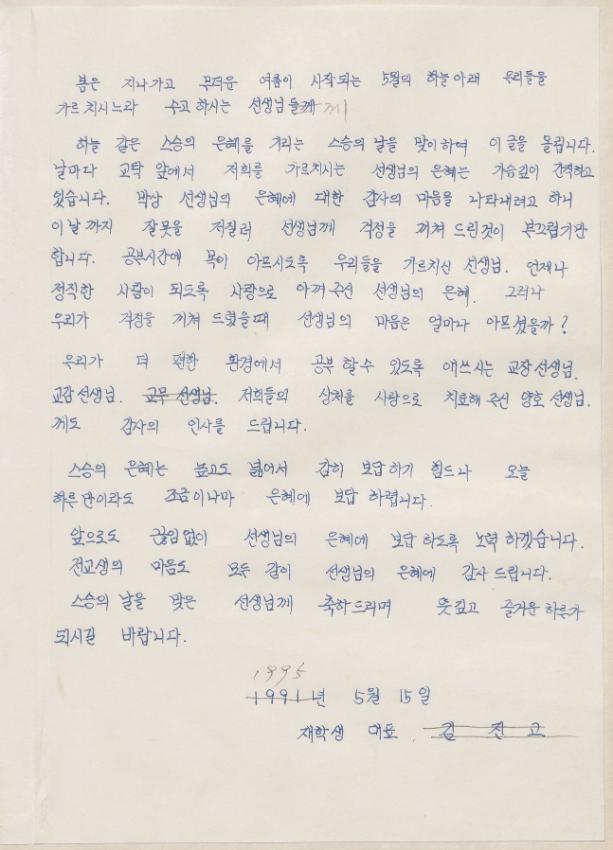 봄은 지나가고 무더운 여름이 시작되는 5월의 하늘아래 우리들을
가르치시느라 수고하시는 선생님들께 께
하늘 같은 스승의 은혜를 기리는 스승의 날을 맞이하여 이 글을 올립니다.
날마다 교탁 앞에서 저희를 가르치시는 선생님의 은혜는 가슴깊이 간직하고
있습니다. 막상 선생님의 은혜에 대한 감사의 마음을 나타내려고 하니
이날까지 잘못을 저질러 선생님께 걱정을 끼쳐 드린것이 부끄럽기만
합니다. 공부시간에 목이 아프시도록 우리들을 가르치신 선생님. 언제나
정직한 사람이 되도록 사랑으로 아껴 주신 선생님의 은혜. 그러나
우리가 걱정을 끼쳐 드렸을때 선생님의 마음은 얼마나 아프셨을까?
우리가 더 편한 환경에서 공부 할수 있도록 애쓰시는 교장선생님.
교감선생님. 교무 선생님. 저희들의 상처를 사랑으로 치료해 주신 양호 선생님.
께도 감사의 인사를 드립니다.
스승의 은혜는 높고도 넓어서 감히 보답하기 힘드나 오늘
하루만이라도 조금이나마 은혜에 보답 하렵니다.
앞으로도 끊임없이 선생님의 은혜에 보답 하도록 노력 하겠습니다.
전교생의 마음도 모두 같이 선생님의 은혜에 감사 드립니다.
스승의 날을 맞은 선생님께 축하드리며 뜻깊고 즐거운 하루가
되시길 바랍니다.
1995
1991년 5월 15일
재학생 대표. 김 진